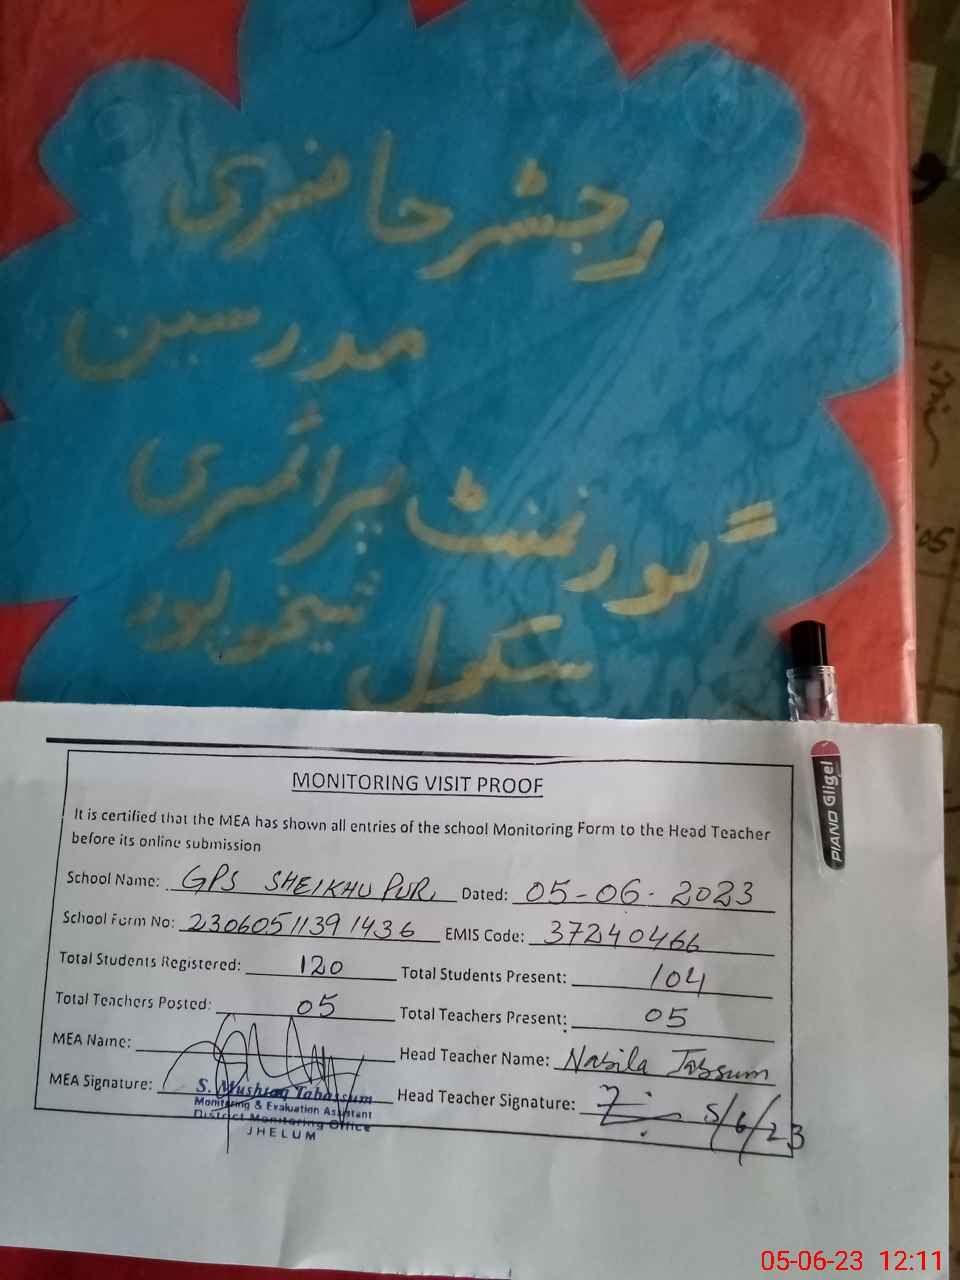 رجسٹر حاضری
مدرسین
گورنمنٹ پرائمری
سکول شیخوپور
PIANO Gligel
MONITORING VISIT PROOF
It is certified that the MEA has shown all entries of the school Monitoring Form to the Head Teacher
before its online submission
School Name: GPS SHEIKHUPUR Dated: 05-06-2023
School Form No: 23060511391436 EMIS Code: 37240466
Total Students Registered: 120 Total Students Present: 104
Total Teachers Posted: 05 Total Teachers Present: 05
MEA Name: Head Teacher Name: Nabila Tabssum
MEA Signature: Head Teacher Signature: 5/6/23
S. Mushtaq Tabassum
Monitoring & Evaluation Assistant
District Monitoring Office
JHELUM
05-06-23 12:11